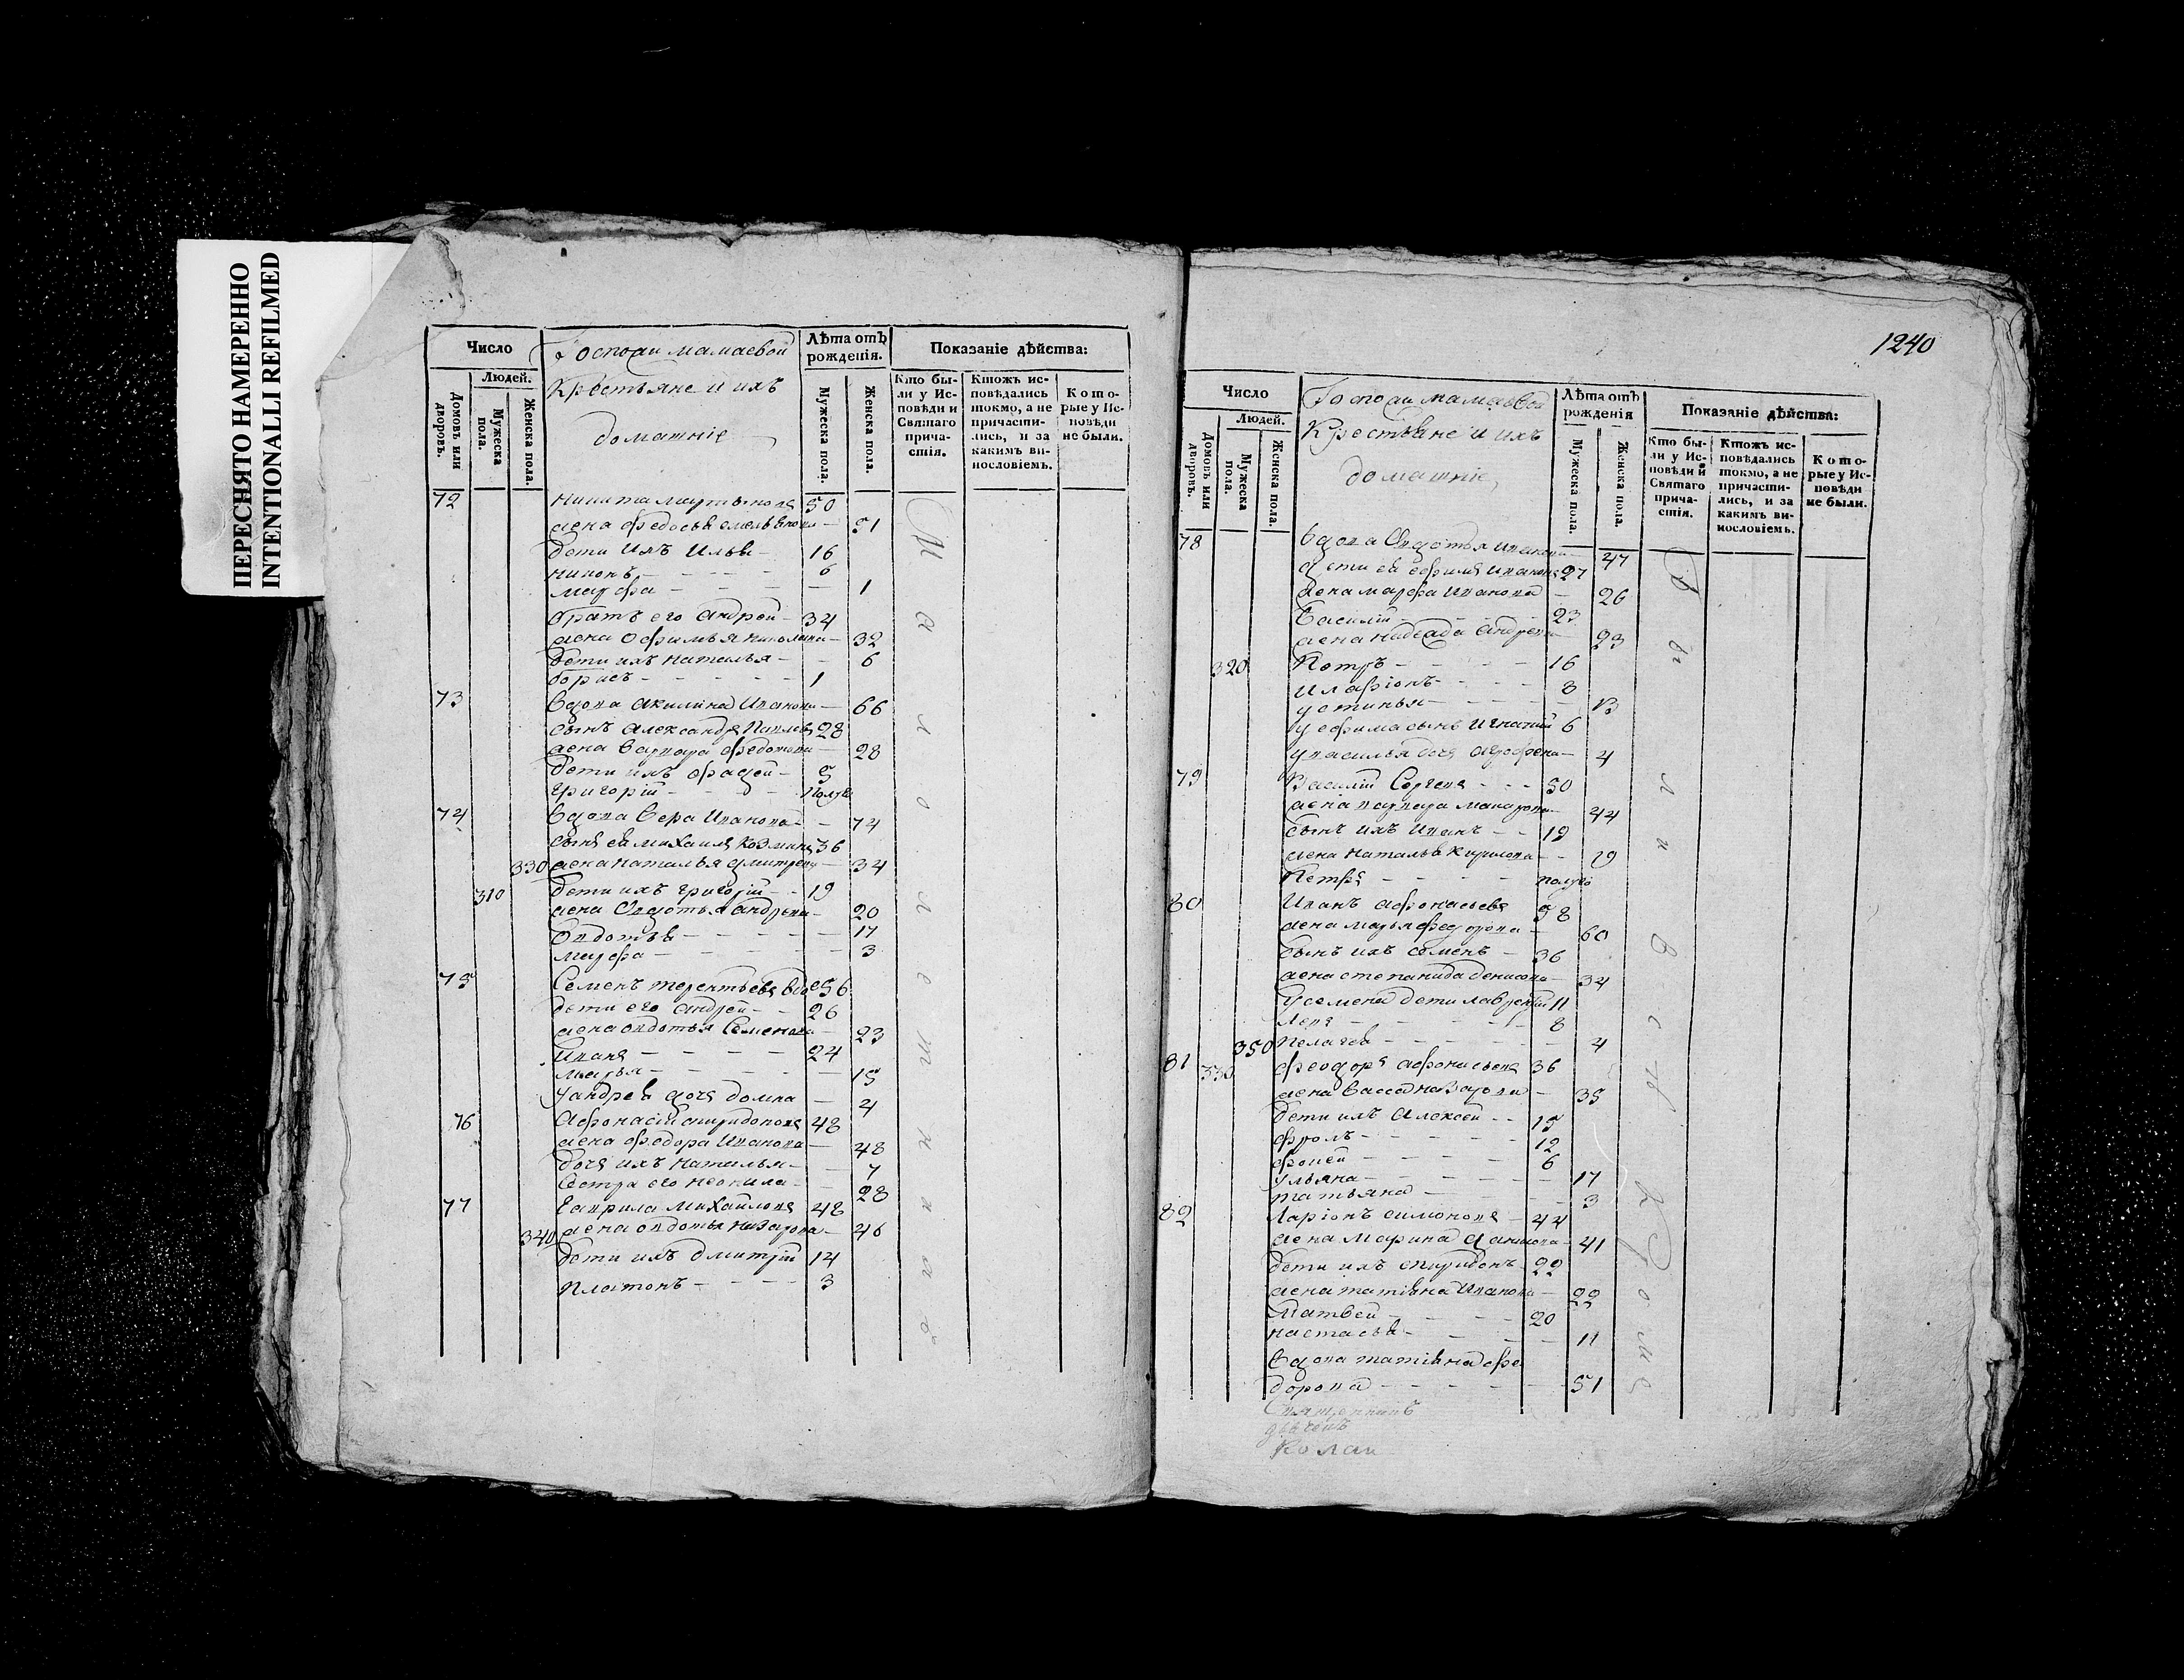 ПЕРЕСНЯТО НАМЕРЕННО
INTENTIONALLI REFILMED
Число
Людей.
Домовъ или дворовъ.
Мужеска пола.
Женска пола.
Госпожи мамаевой
крестьяне и ихъ
домашніе
Лѣта отъ рожденія.
Мужеска пола.
Женска пола.
Показаніе дѣйства:
Кто бы-
ли у Ис-
повѣди и
Святаго
прича-
стія.
Ктожъ ис-
повѣдались
токмо, а не
причасти-
лись, и за
какимъ ви-
нословіемъ.
Кото-
рые у Ис-
повѣди
не были.
72 никита мартыновъ 50
жена федосья емельянова 51
дети ихъ илья 16
никонъ 6
марфа 1
братъ его андрей 34
жена офимья 32
дети ихъ наталья 6
борисъ 1
73 вдова акилина иванова 66
сынъ александръ 28
жена варвара федотова 28
дети ихъ фадей 5
григорій полуг
74 вдова вера иванова 74
сынъ ея михаилъ козминъ 36
330 жена наталья дмитрева 34
310 дети ихъ григорій 19
жена овдотья андрева 20
овдотья 17
марфа 3
75 Семенъ терентьевъ вдов 56
дети его андрей 26
жена овдотья Семенова 23
иванъ 24
марья 15
у андрея дочь домна 4
76 Афонасій спиридоновъ 48
жена федора иванова 48
дочь ихъ наталья 7
Сестра его неонила 28
77 Гаврила михайловъ 48
340 жена овдотья назарова 46
дети ихъ дмитрій 14
платонъ 3
1240
Число
Людей.
Домовъ или дворовъ.
Мужеска пола.
Женска пола.
Госпожи мамаевой
Крестьяне и ихъ
домашніе
Лѣта отъ рожденія
Мужеска пола.
Женска пола.
Показаніе дѣйства:
Кто бы-
ли у Ис-
повѣди и
Святаго
прича-
стія.
Ктожъ ис-
повѣдались
токмо, а не
причасти-
лись, и за
какимъ ви-
нословіемъ.
Кото-
рые у Ис-
повѣди
не были.
78 вдова Овдотья иванова 47
дети ея ефимъ ивановъ 27
жена марфа иванова 26
василій 23
жена надежда андрева 23
320 Петръ 16
иларіонъ 8
устинья 13
у ефима сынъ игнатий 6
у василья дочь 4
79 Василій Сергевъ 50
жена варвара макарова 44
сынъ ихъ иванъ 19
жена наталья кирилова 19
Петръ полуго
80 Иванъ афонасьевъ 58
жена марья федорова 60
сынъ ихъ семенъ 36
жена степанида денисова 34
у семена дети лаврентій 11
левъ 8
350 Пелагея 4
81 330 феодоръ афонасьевъ 36
жена васса назарова 35
дети ихъ алексей 15
фролъ 12
фокей 6
ульяна 17
татьяна 3
82 Ларіонъ симоновъ 44
жена марина данилова 41
дети ихъ спиридонъ 22
жена татіяна иванова 22
Матвей 20
настасья 11
вдова татіяна фе
дорова 51
Священникъ